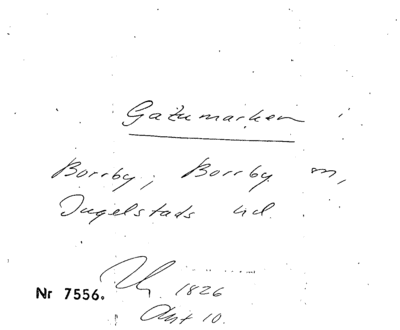 Gatumarken i
Borrby, Borrby sn,
Ingelstads hd.
1826
Nr 7556.
Akt 10.